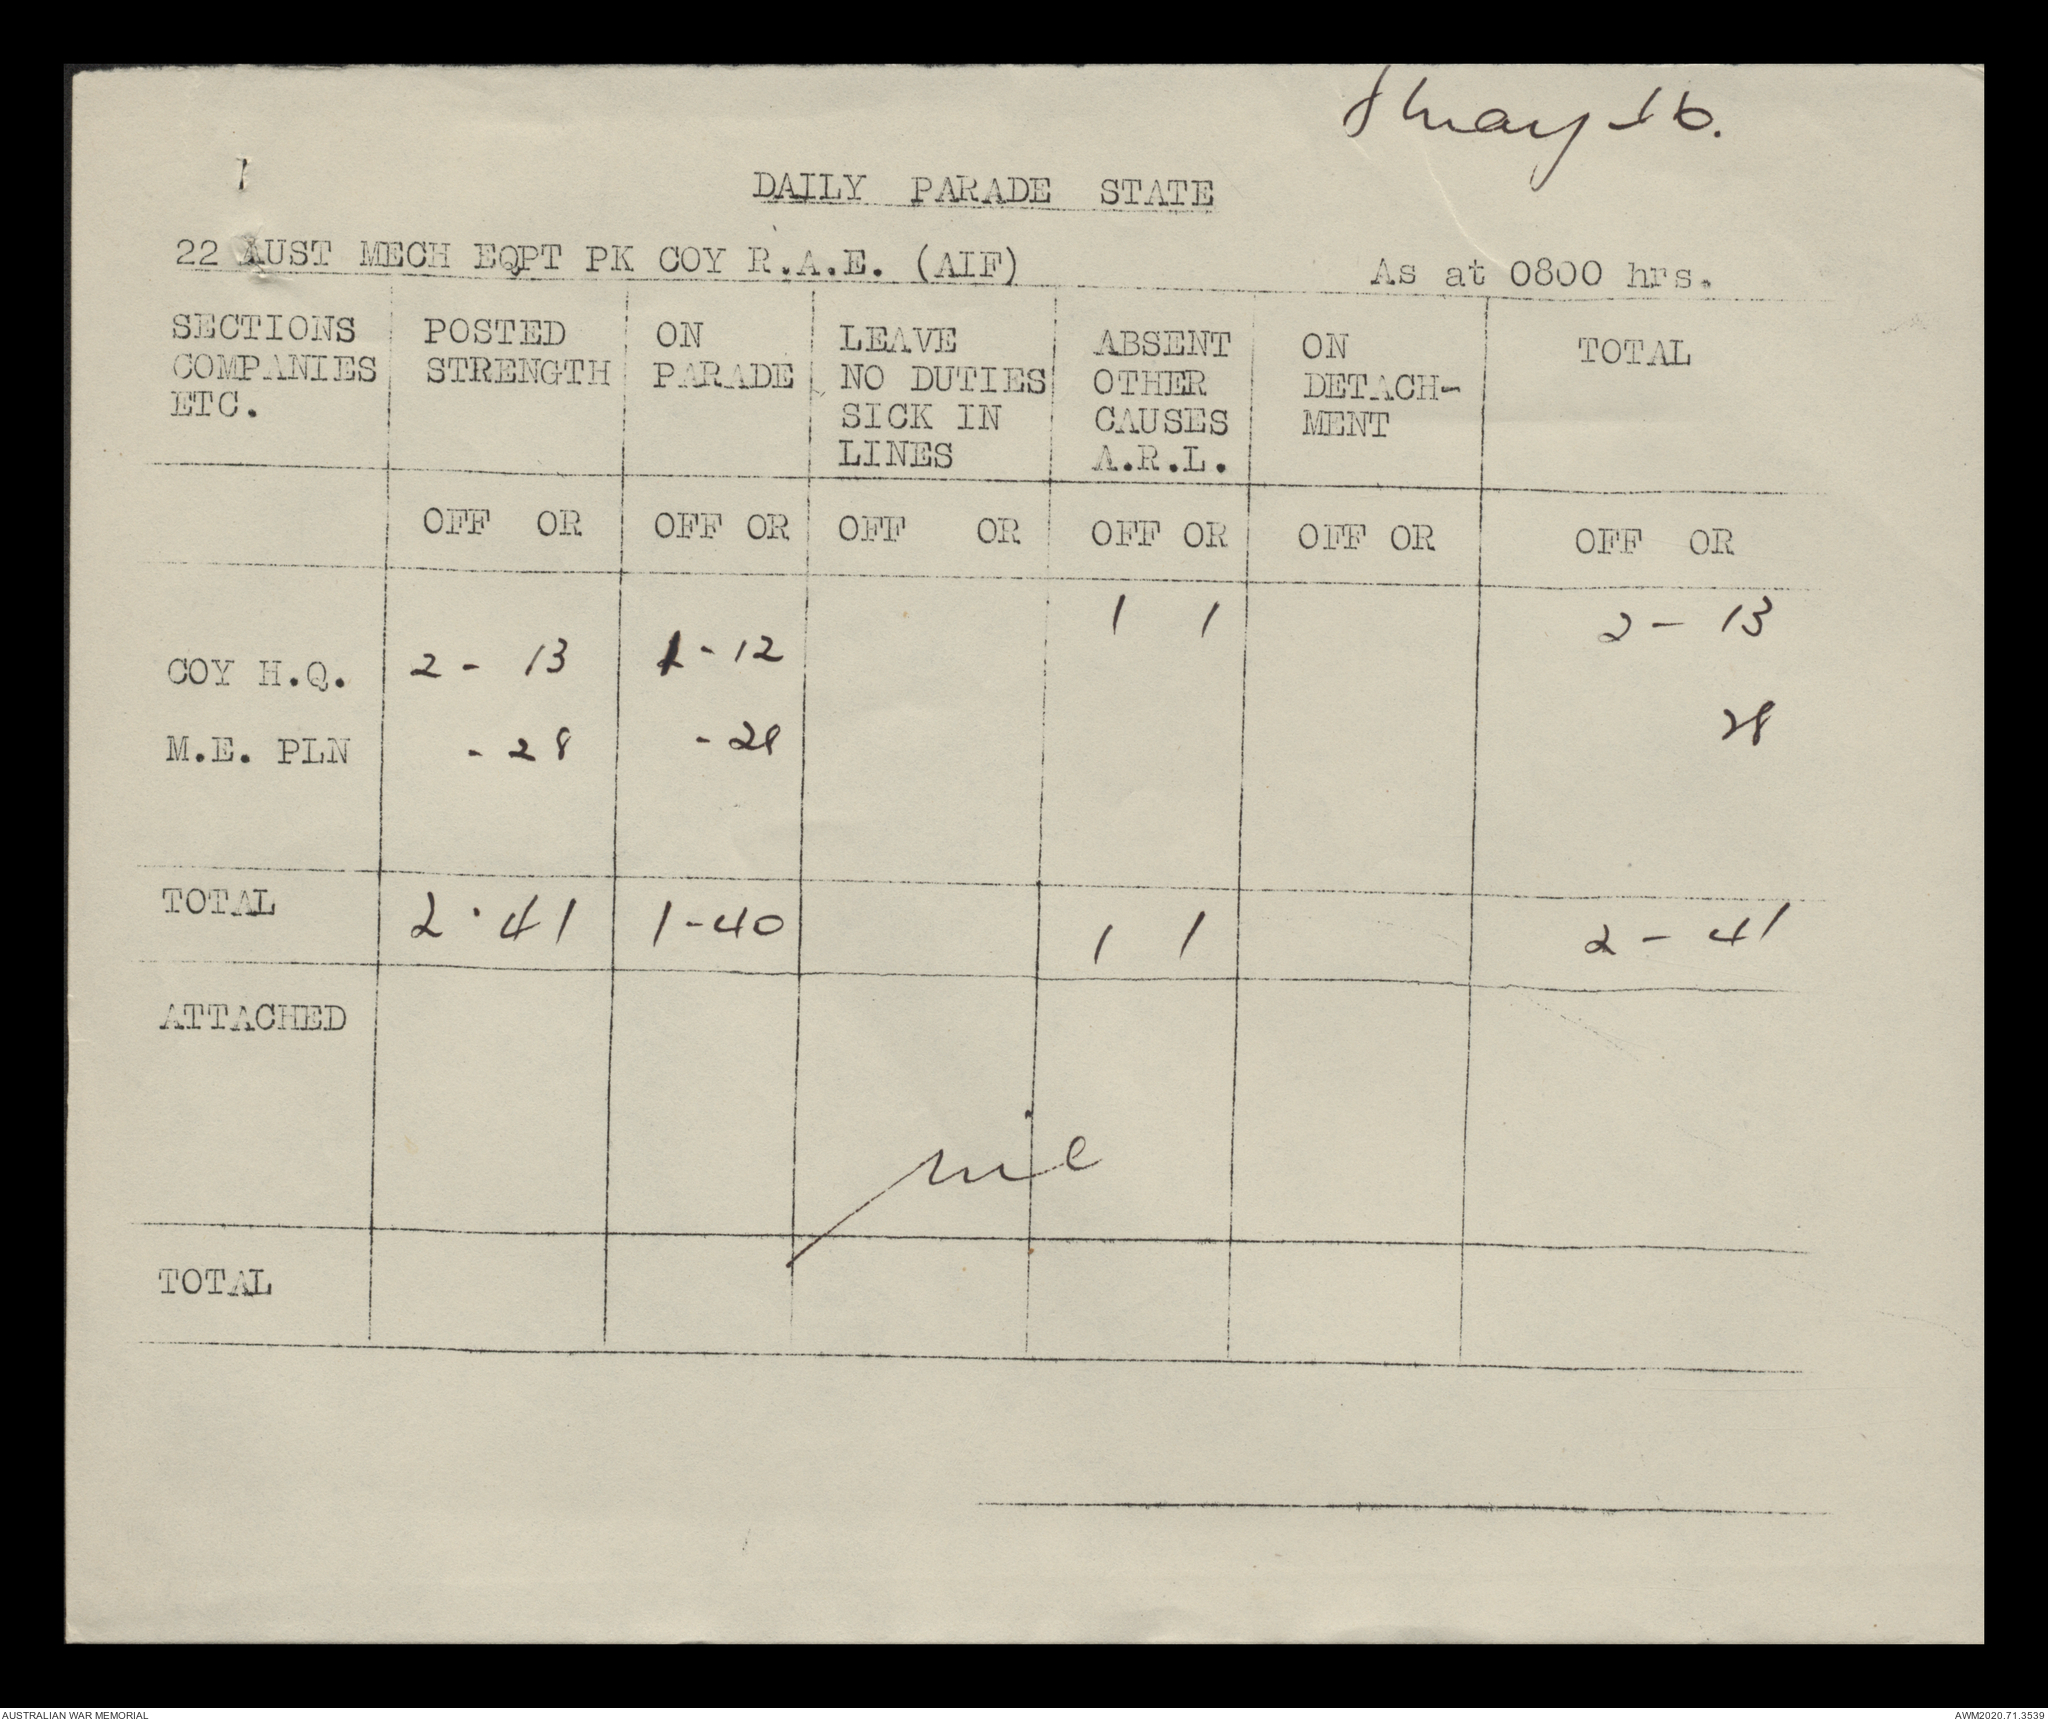 8 May 46.
DAILY PARADE STATE
22 AUST MECH EQPT PK COY R.A.E. (AIF)
As at 0800 hrs.
SECTIONS COMPANIES ETC.
POSTED STRENGTH
ON PARADE
LEAVE NO DUTIES SICK IN LINES
ABSENT OTHER CAUSES A.R.L.
ON DETACH- MENT
TOTAL
OFF OR OFF OR OFF OR OFF OR OFF OR OFF OR
COY H.Q. 2 - 13 1 - 12 1 1 2 - 13
M.E. PLN - 28 - 28 28
TOTAL 2 · 41 1 - 40 1 1 2 - 41
ATTACHED
nil
TOTAL
AUSTRALIAN WAR MEMORIAL
AWM2020.71.3539